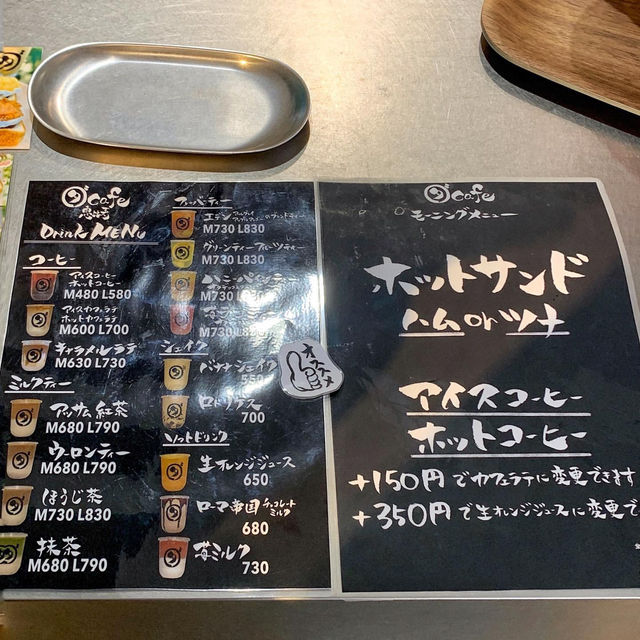 cafe
Drink MENU
コーヒー
アイスコーヒー
ホットコーヒー
M480 L580
アイスカフェラテ
ホットカフェラテ
M600 L700
キャラメルラテ
M630 L730
ミルクティー
アッサム紅茶
M680 L790
ウーロンティー
M680 L790
ほうじ茶
M730 L830
抹茶
M680 L790
M730 L830
グリーンティーフルーツティー
M730 L830
M730
M730
シェイク
バナナシェイク
550
700
ソフトドリンク
生オレンジジュース
650
ローマ帝国チョコレートミルク
680
苺ミルク
730
オススメ
cafe
モーニングメニュー
ホットサンド
ハム or ツナ
アイスコーヒー
ホットコーヒー
+150円でカフェラテに変更できます
+350円で生オレンジジュースに変更で